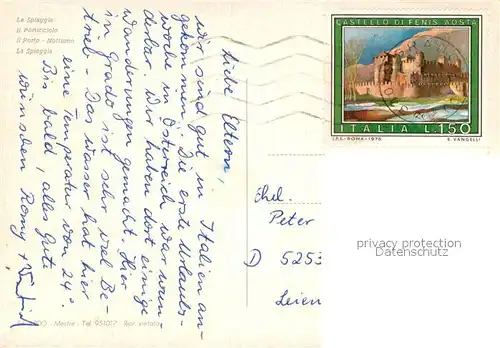 La Spiaggia
Il Porticciolo
Il Porto - Notturno
La Spiaggia
CASTELLO DI FENIS, AOSTA
ITALIA L.150
I.P.S.-ROMA-1976
E. VANGELLI
Liebe Eltern,
wir sind gut in Italien an-
gekommen. Die erste Urlaubs-
woche in Österreich war wun-
derbar. Wir haben dort einige
Wanderungen gemacht. Hier
in Grado ist sehr viel Be-
trieb. Das Wasser hat hier
eine Temperatur von 24°.
Bis bald, alles Gute
wünschen Romy +
Ehel.
Peter
D 5253
privacy protection
Datenschutz
Mestre - Tel. 951017 Ripr. vietata